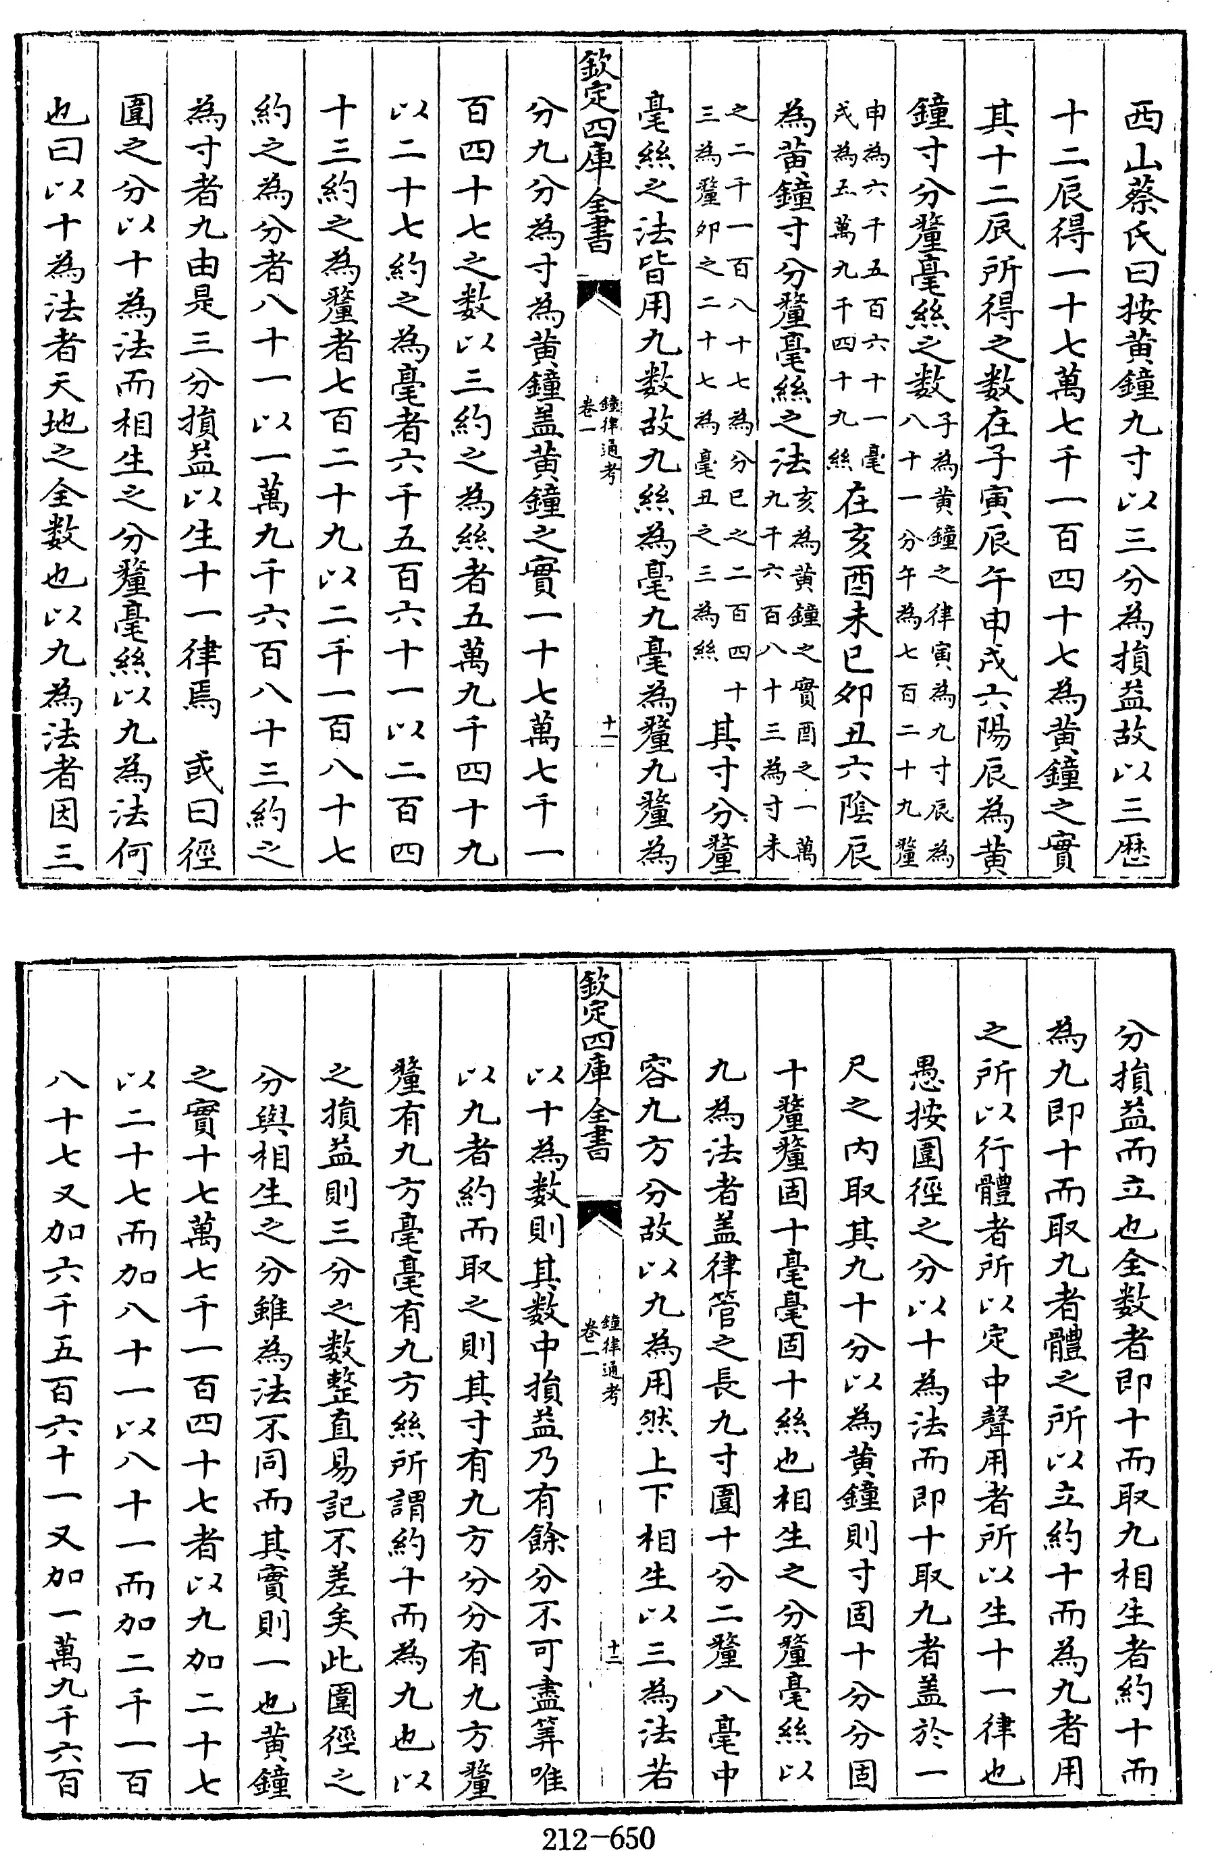 西山蔡氏曰按黃鐘九寸以三分為損益故以三歴
十二辰得一十七萬七千一百四十七為黃鐘之實
其十二辰所得之數在子寅辰午申戌六陽辰為黃
鐘寸分釐毫絲之數子為黃鐘之律寅為九寸辰為八十一分午為七百二十九釐
申為六千五百六十一毫戌為五萬九千四十九絲在亥酉未巳卯丑六陰辰
為黃鐘寸分釐毫絲之法亥為黃鐘之實酉之一萬九千六百八十三為寸未
之二千一百八十七為分巳之二百四十三為釐卯之二十七為毫丑之三為絲其寸分釐
毫絲之法皆用九數故九絲為毫九毫為釐九釐為
欽定四庫全書 鐘律通考 卷一 十一
分九分為寸為黃鐘蓋黃鐘之實一十七萬七千一
百四十七之數以三約之為絲者五萬九千四十九
以二十七約之為毫者六千五百六十一以二百四
十三約之為釐者七百二十九以二千一百八十七
約之為分者八十一以一萬九千六百八十三約之
為寸者九由是三分損益以生十一律焉 或曰徑
圍之分以十為法而相生之分釐毫絲以九為法何
也曰以十為法者天地之全數也以九為法者因三
分損益而立也全數者即十而取九相生者約十而
為九即十而取九者體之所以立約十而為九者用
之所以行體者所以定中聲用者所以生十一律也
愚按圍徑之分以十為法而即十取九者蓋於一
尺之內取其九十分以為黃鐘則寸固十分分固
十釐釐固十毫毫固十絲也相生之分釐毫絲以
九為法者蓋律管之長九寸圍十分二釐八毫中
容九方分故以九為用然上下相生以三為法若
欽定四庫全書 鐘律通考 卷一 十二
以十為數則其數中損益乃有餘分不可盡筭唯
以九者約而取之則其寸有九方分分有九方釐
釐有九方毫毫有九方絲所謂約十而為九也以
之損益則三分之數整直易記不差矣此圍徑之
分與相生之分雖為法不同而其實則一也黃鐘
之實十七萬七千一百四十七者以九加二十七
以二十七而加八十一以八十一而加二千一百
八十七又加六千五百六十一又加一萬九千六百
212-650